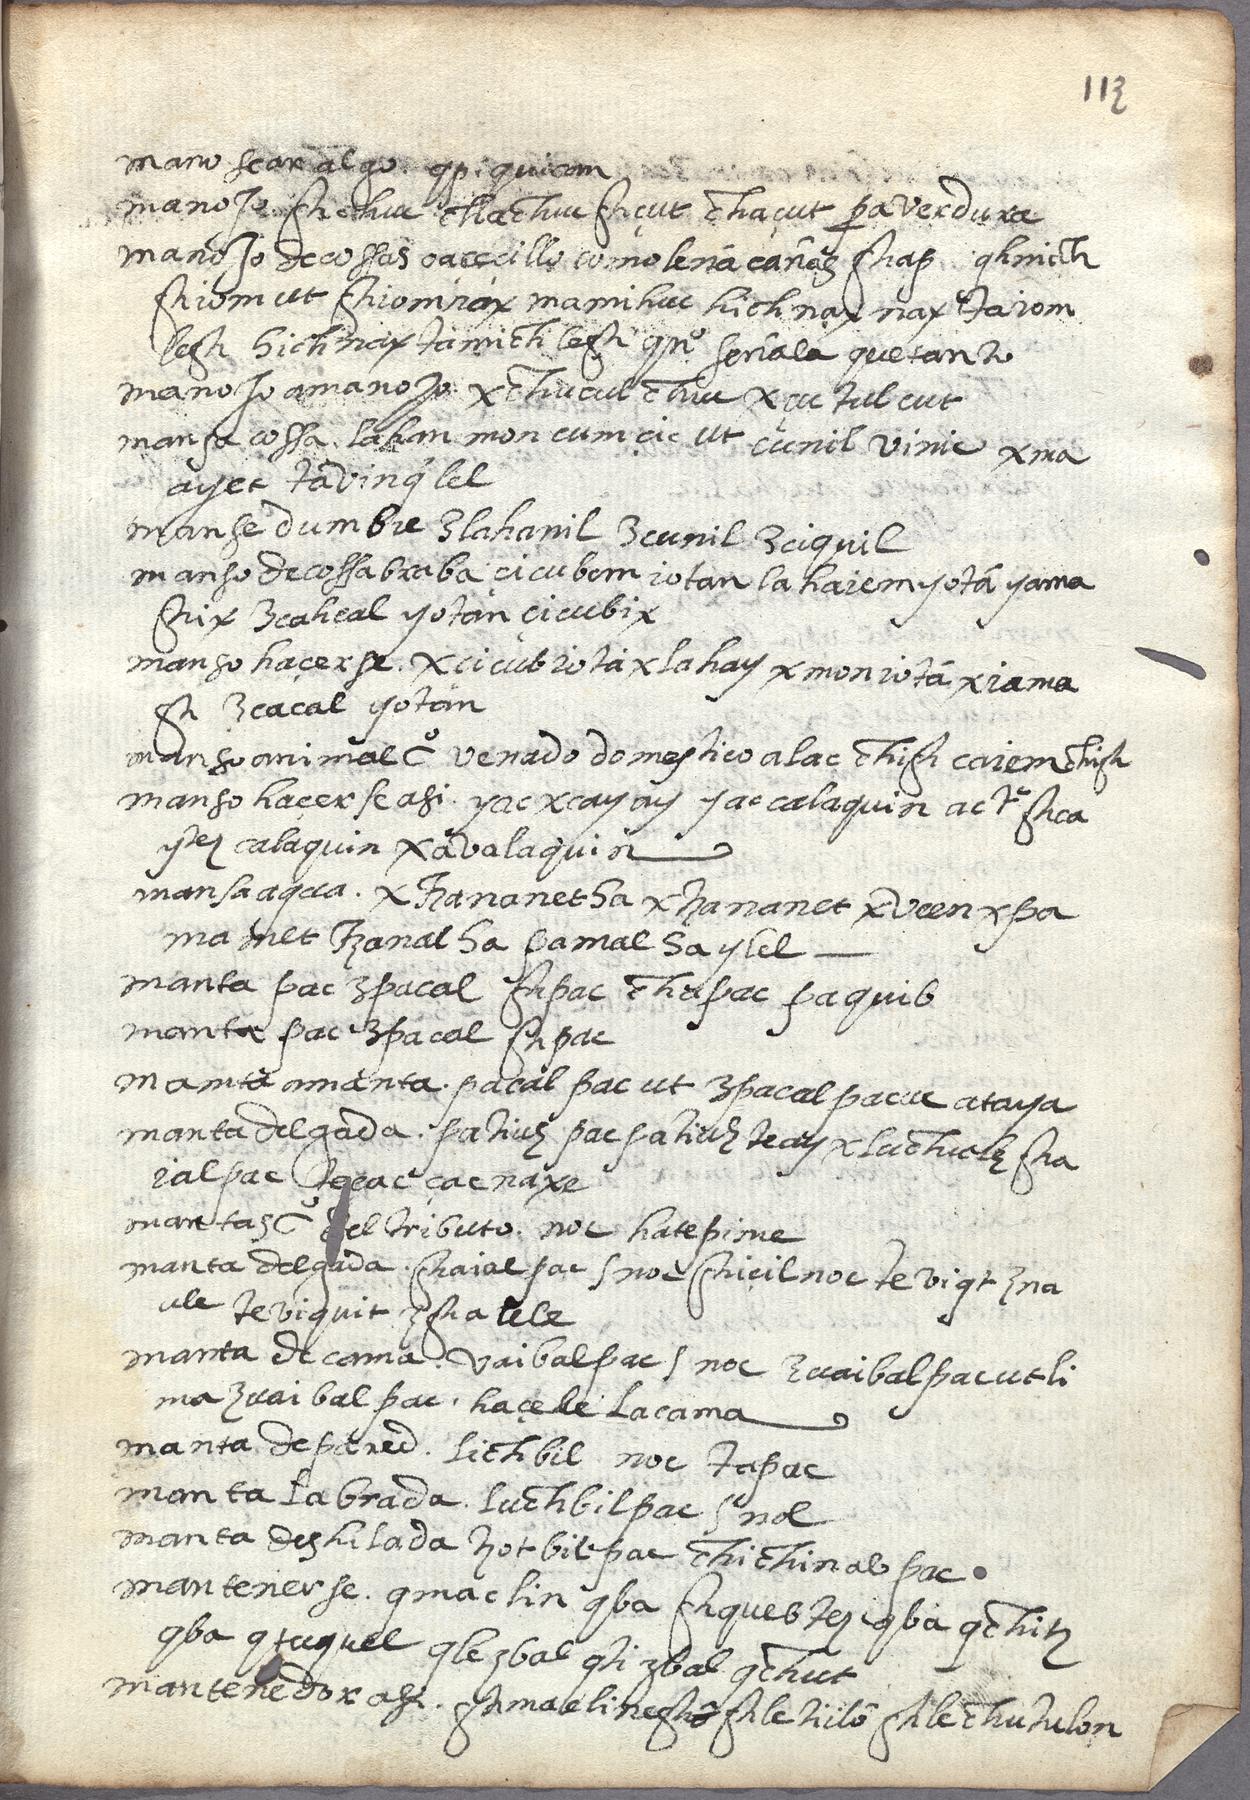 113
mano sear algo. qp. quiom
manoJo ghchuc chachuc ghcut chacut pa verdura
manoJo decossas o aecillo como leña cañas ghap ghmich
ghiom ut ghiom nax mamihuc hich nax nax ta iom
legh hich nax ta mich legh qno señala que tanto
manoJo a manoJo xchucul chuc xcutul cut
mansa cossa. lahan mon cum cic ut cunil vinic xma
ayec tavinq lel
mansedumbre 3lahanil 3cunil 3ciquil
manso de cossa braba cicubem iotan lahaiem yotã yama
ghix 3cahcal yotan cicubix
manso haçerse. xcicub iotã xlahay xmon iotã xiama
gh 3cacal yotan
manso animal co venado domestico alac chigh caiem chigh
manso haçerse asi. yac xcayay yac calaquin ac to ghca
calaquin xavalaquin
mansa agua. xtzananet ha xtzananet xvcen xpa
ma net tzanal ha pamal ha ylel
manta pac 3pacal ghpac chapac paquib
manta pac 3pacal ghpac
manta amanta. pacal pac ut 3pacal pacuc ataya
manta delgada. patiu3 pac patiu3 tecay xluchul3 gha
ial pac tecac cac naxe
mantas co del tributo. noc hatepime
manta delgada. ghaial pac s noc ghicil noc te viqt 3na
ule te viquit 3gha lele
manta de cama. vaibal pac s noc 3vaibal pac ut li
ma 3vaibal pac. haçele la cama
manta de pared. lichbil noc tapac
manta labrada. luchbil pac s noc
manta deshilada hotbil pac chichinab pac
mantenerse. qmaclin qba ghqueb te3 qba qchitz
qba qtuquel qle3bal qti3bal qchut
mantenedor asi. ghmaclinegh ghletiilõ ghlechutulon